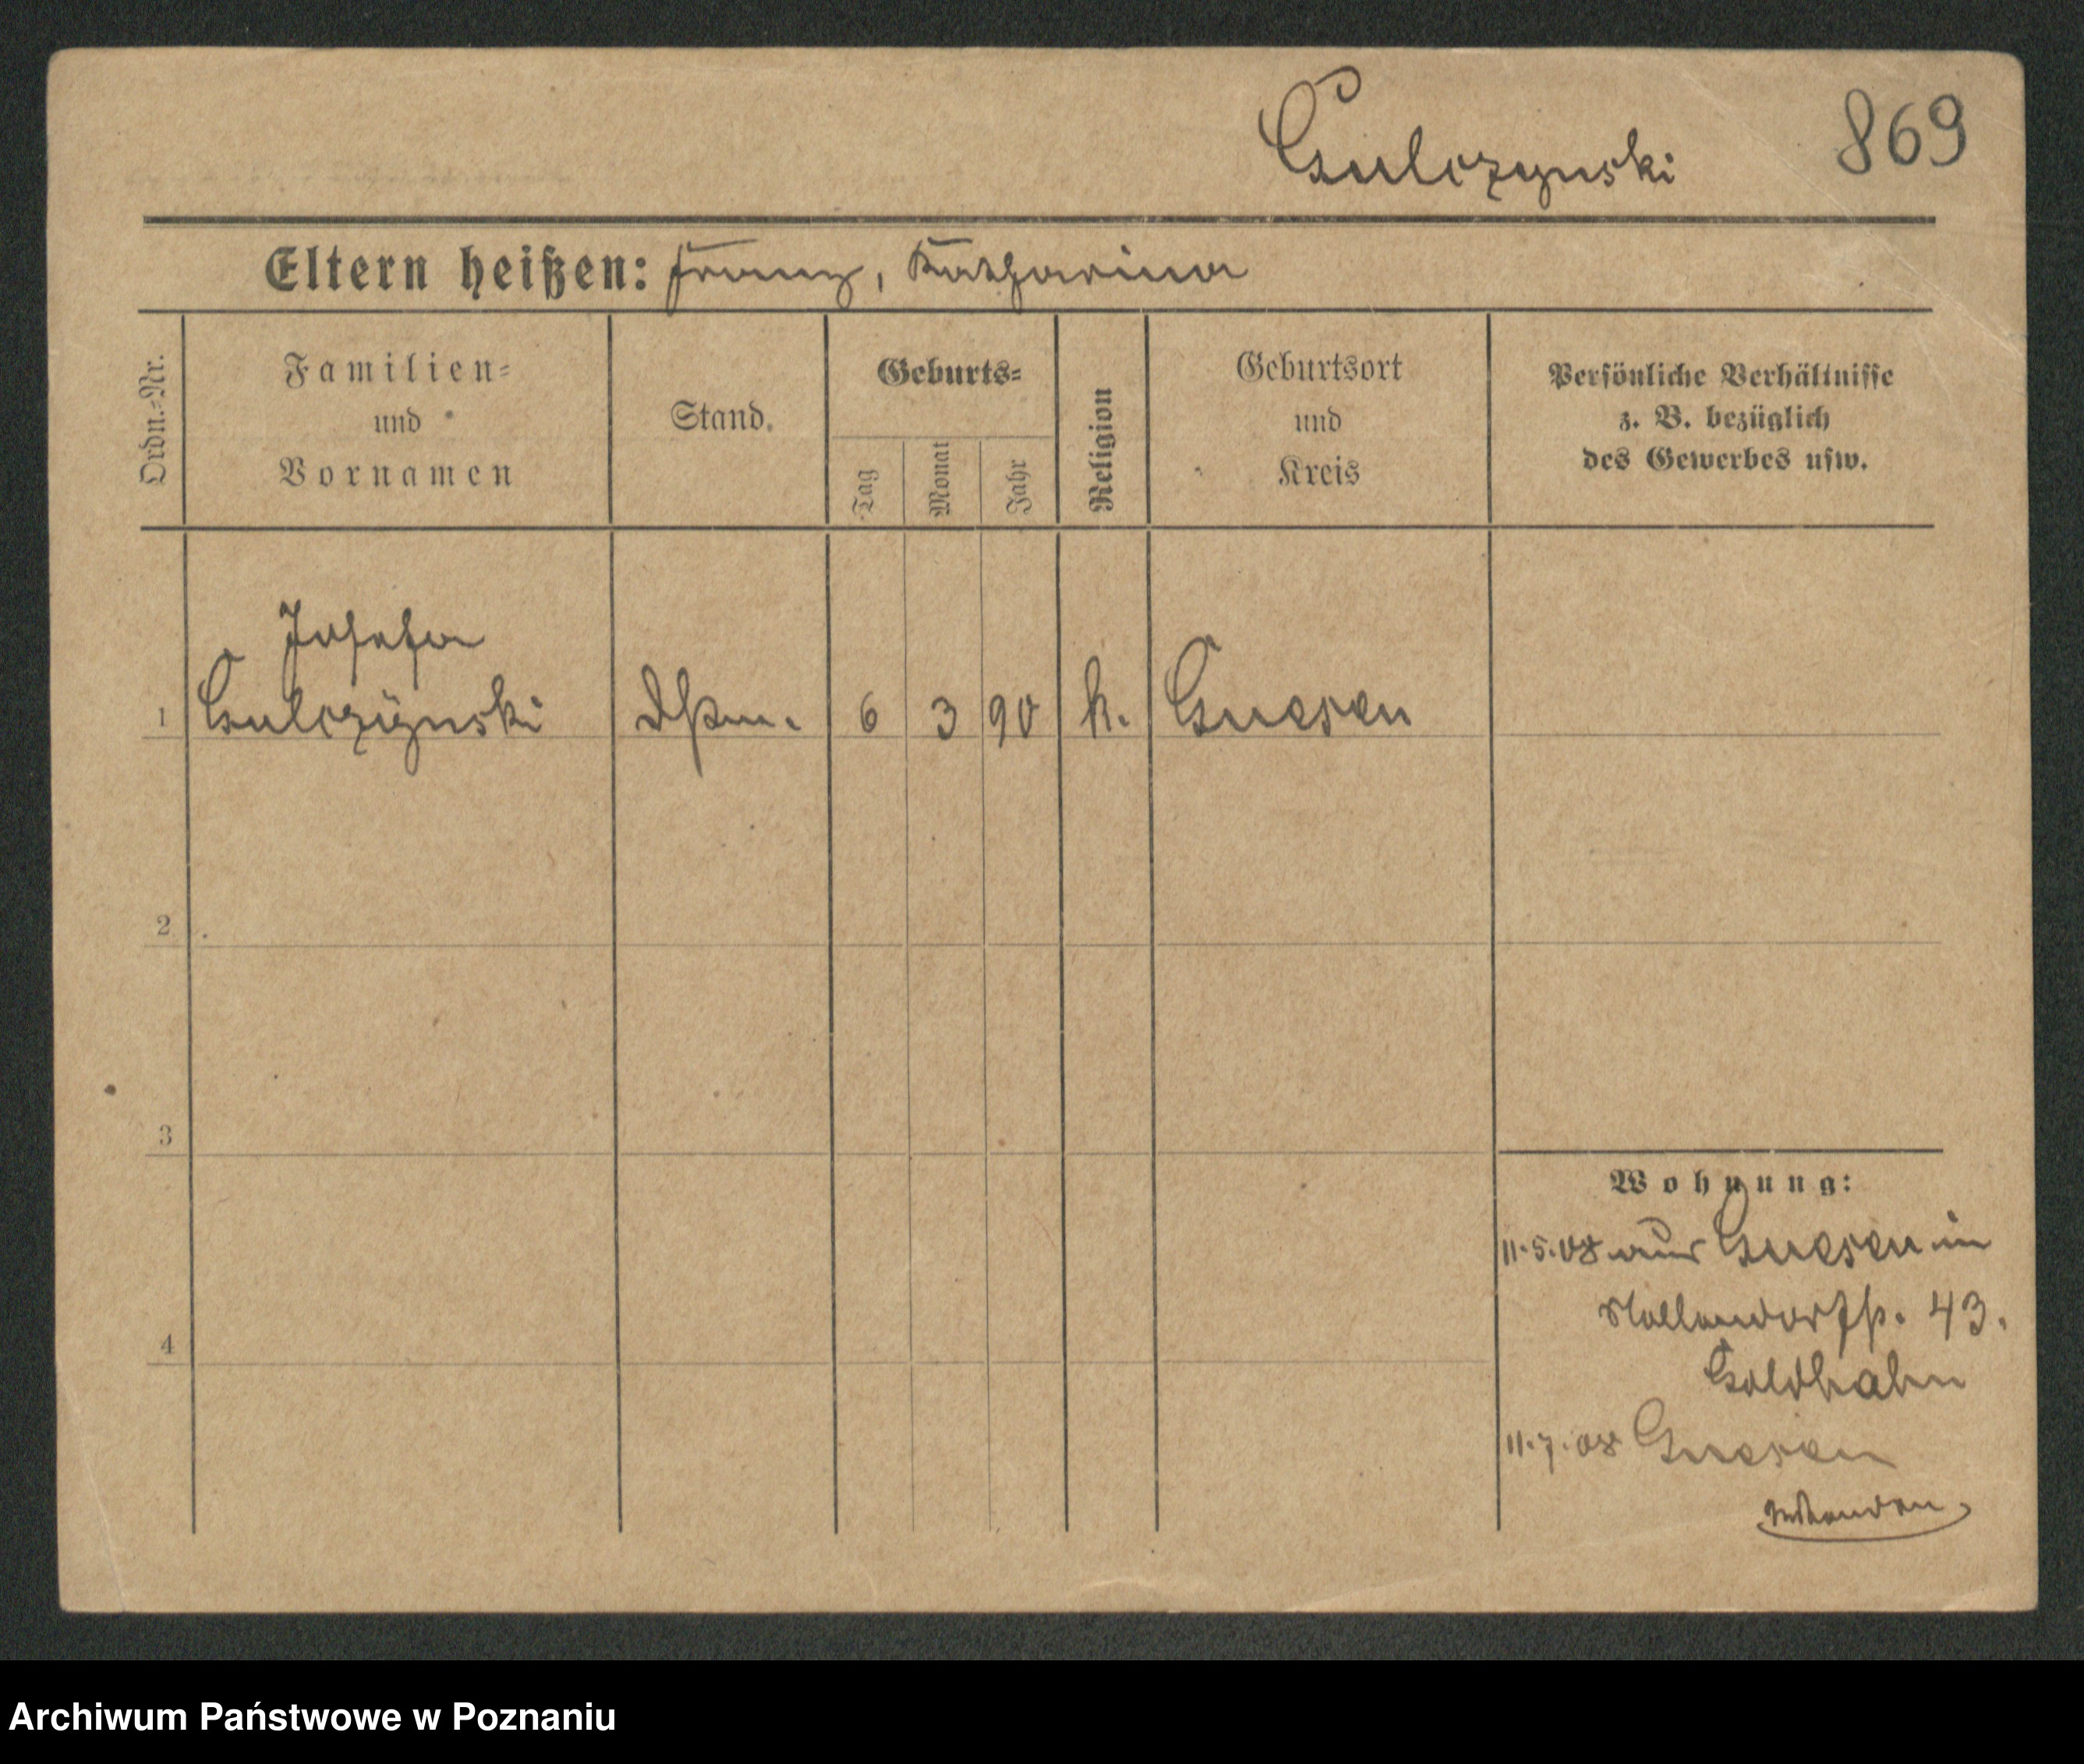 Gulczynski 869
Eltern heißen: Franz, Katharina
Ordn.-Nr.
Familien-
und
Vornamen
Stand.
Geburts-
Tag
Monat
Jahr
Religion
Geburtsort
und
Kreis
Persönliche Verhältnisse
z. B. bezüglich
des Gewerbes usw.
Josefa
1 Gulczÿnski 6 3 90 k. Gnesen
2
3
4
Wohnung:
11.5.08 aus Gnesen in
Nollendorfstr. 43.
Goldhahn
11.7.08 Gnesen
Archiwum Państwowe w Poznaniu